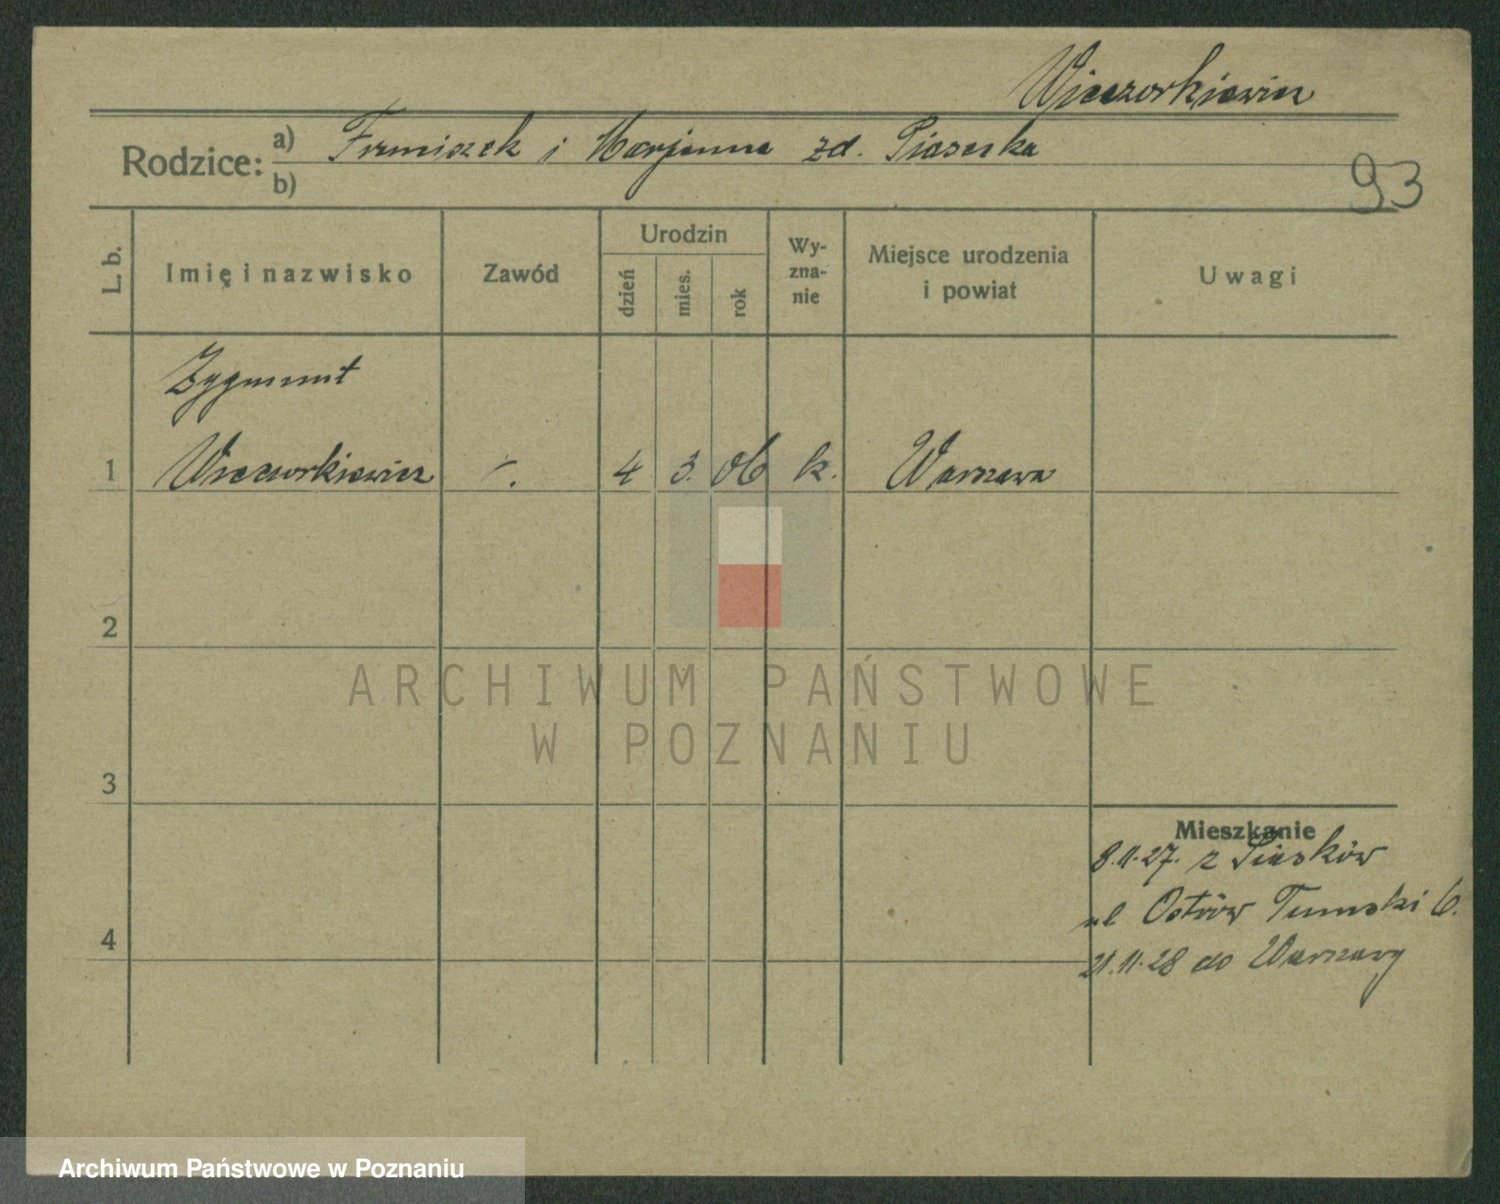 Wieczorkiewicz
Rodzice: a) Franciszek i Marjanna zd. Piasecka
b)
93
L. b.
Imię i nazwisko
Zawód
Urodzin
dzień
mies.
rok
Wy-
zna-
nie
Miejsce urodzenia
i powiat
Uwagi
Zygmunt
1 Wieczorkiewicz -. 4 3. 06 k. Warszawa
2
ARCHIWUM PAŃSTWOWE
W POZNANIU
3
Mieszkanie
8.11.27. z Piasków
ul Ostrów Tumski 6.
4
21.11.28 do Warszawy
Archiwum Państwowe w Poznaniu